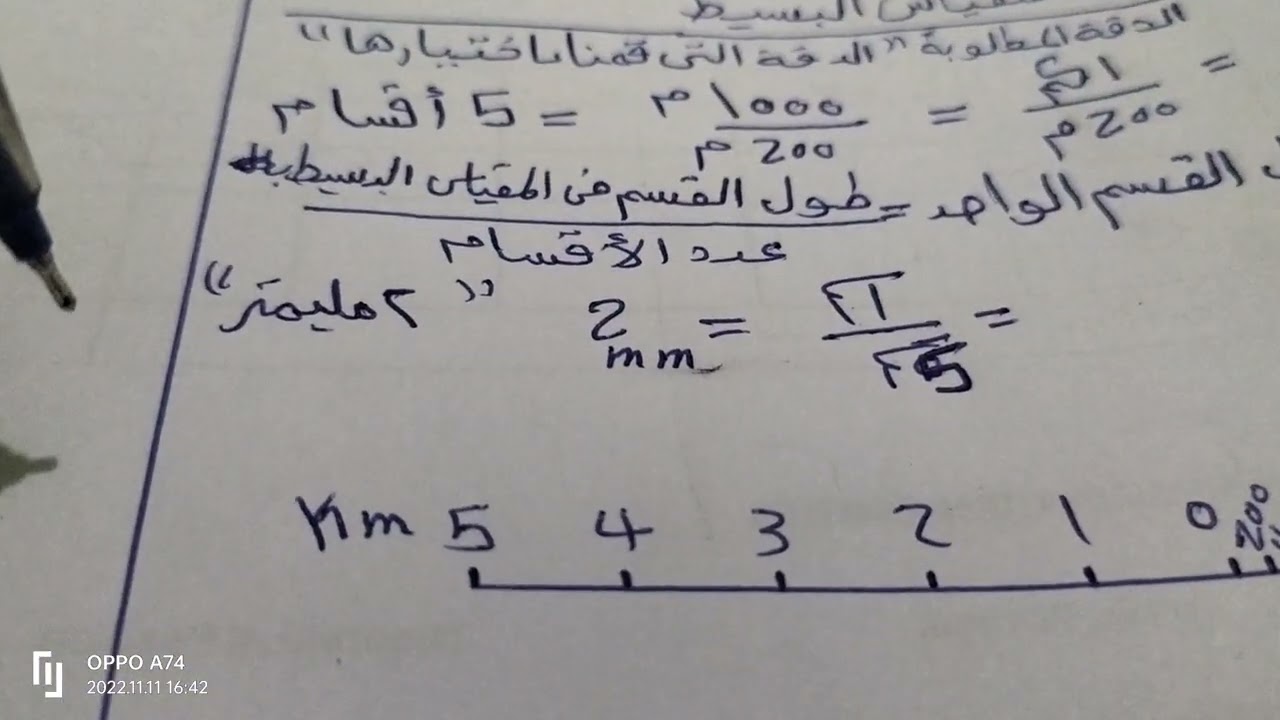 المقياس البسيط
الدقة المطلوبة "الدقة التي قمنا باختيارها"
= 1 كم / 200 م = 1000 م / 200 م = 5 أقسام
القسم الواحد = طول القسم في المقياس البسيط
عدد الأقسام
= = 2 mm "2 مليمتر"
Km 5 4 3 2 1 0 200
OPPO A74
2022.11.11 16:42